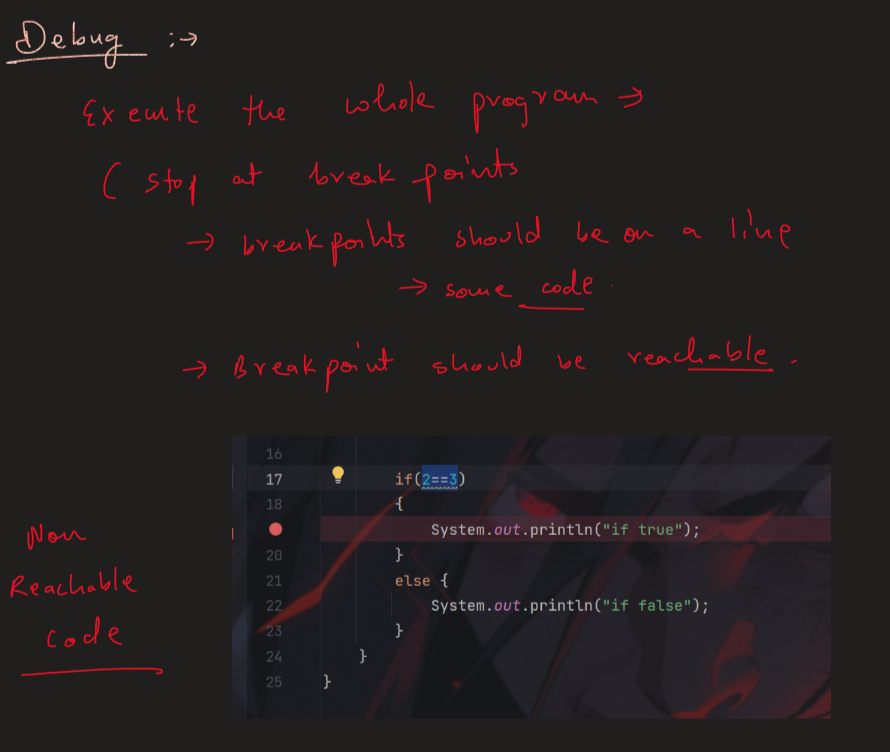 Debug :→
Execute the whole program →
( stop at break points
→ breakpoints should be on a line
→ some code.
→ Breakpoint should be reachable.
16
17 if(2==3)
18 {
System.out.println("if true");
20 }
21 else {
22 System.out.println("if false");
23 }
24 }
25 }
Non
Reachable
code